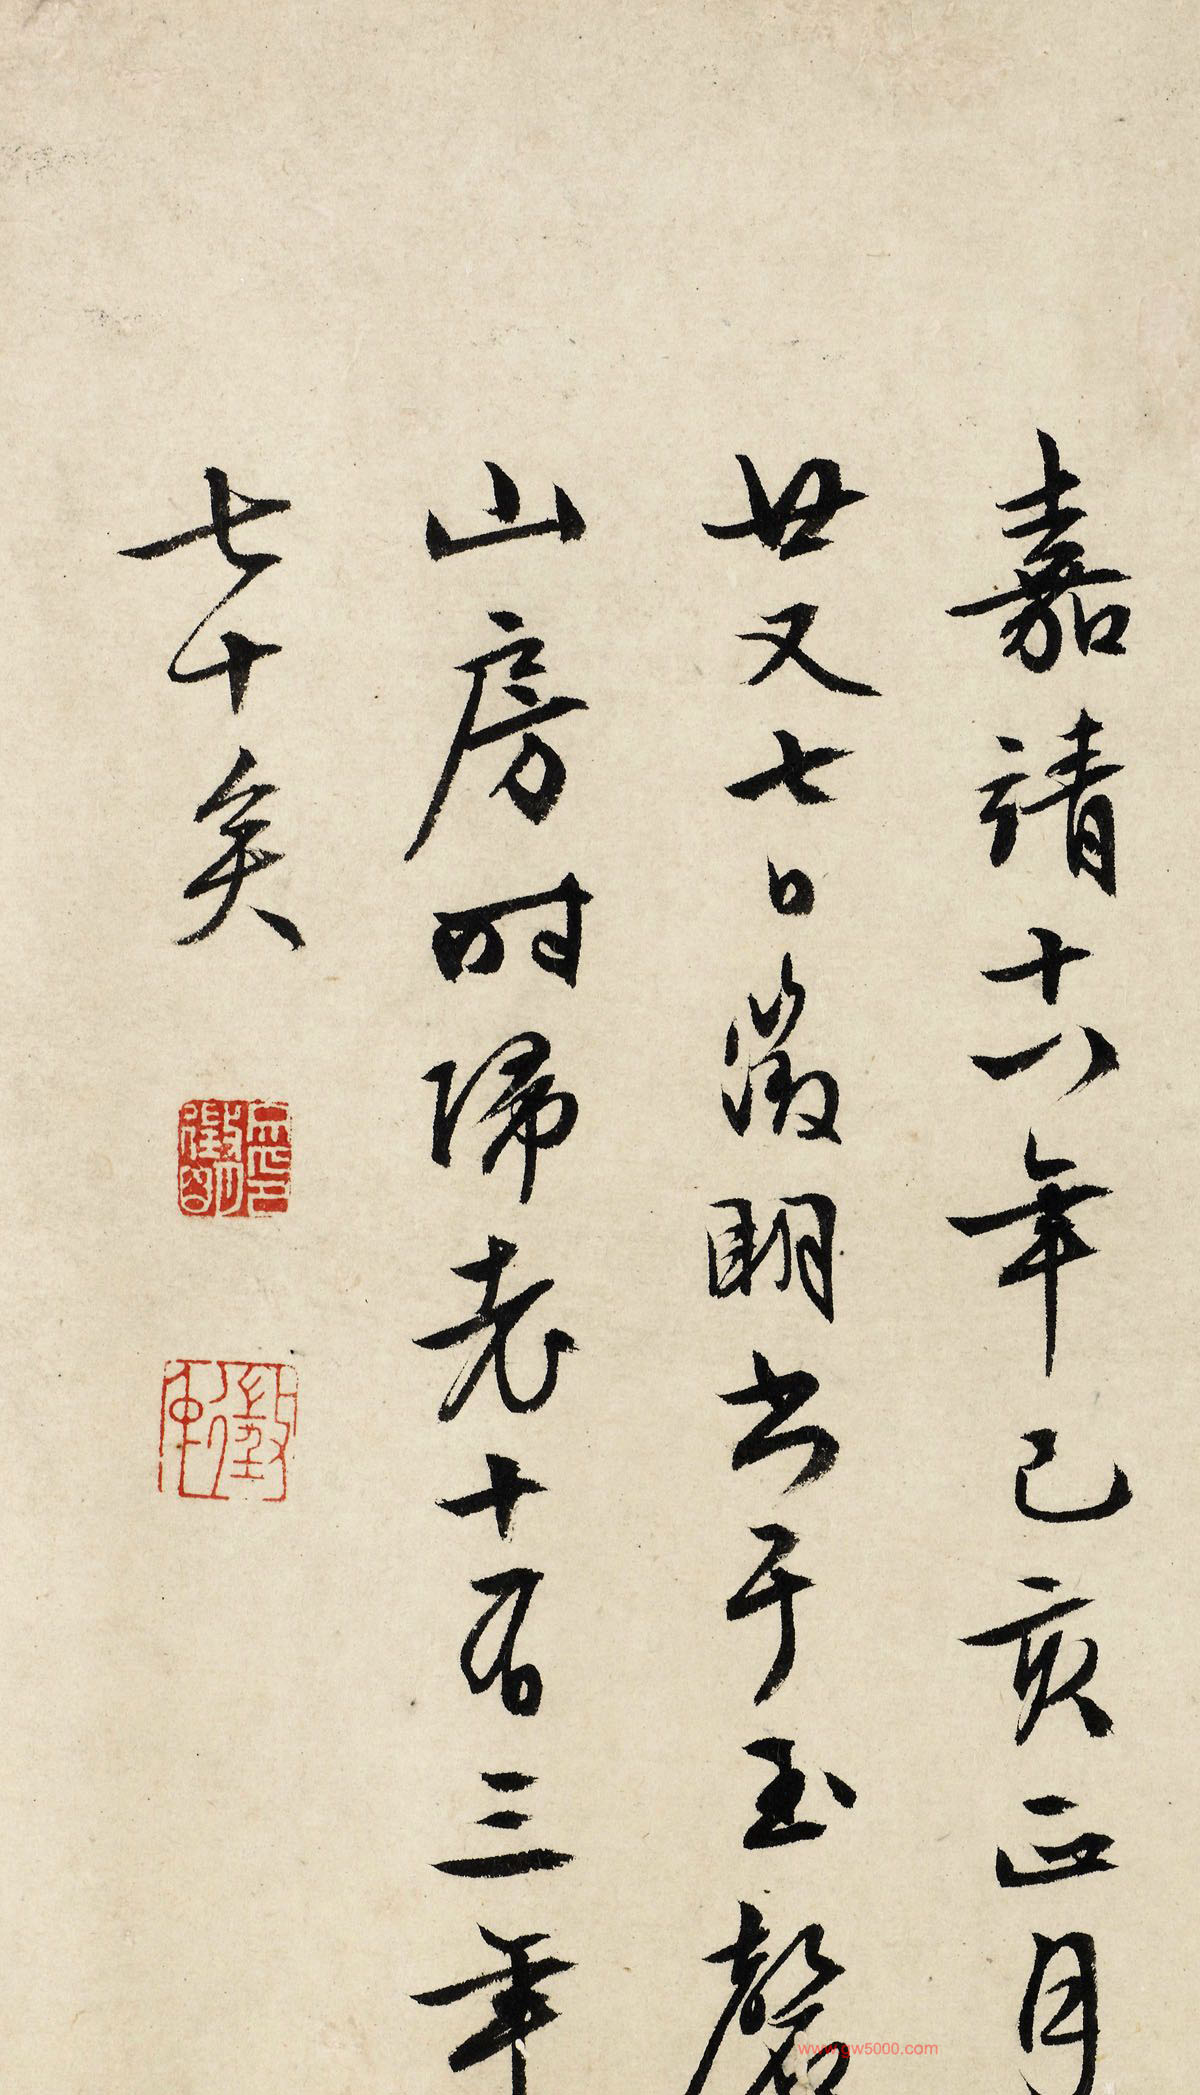 嘉靖十八年己亥正月
廿又七日徵明書于玉磬
山房時歸老十有三年
七十矣
www.gw5000.com